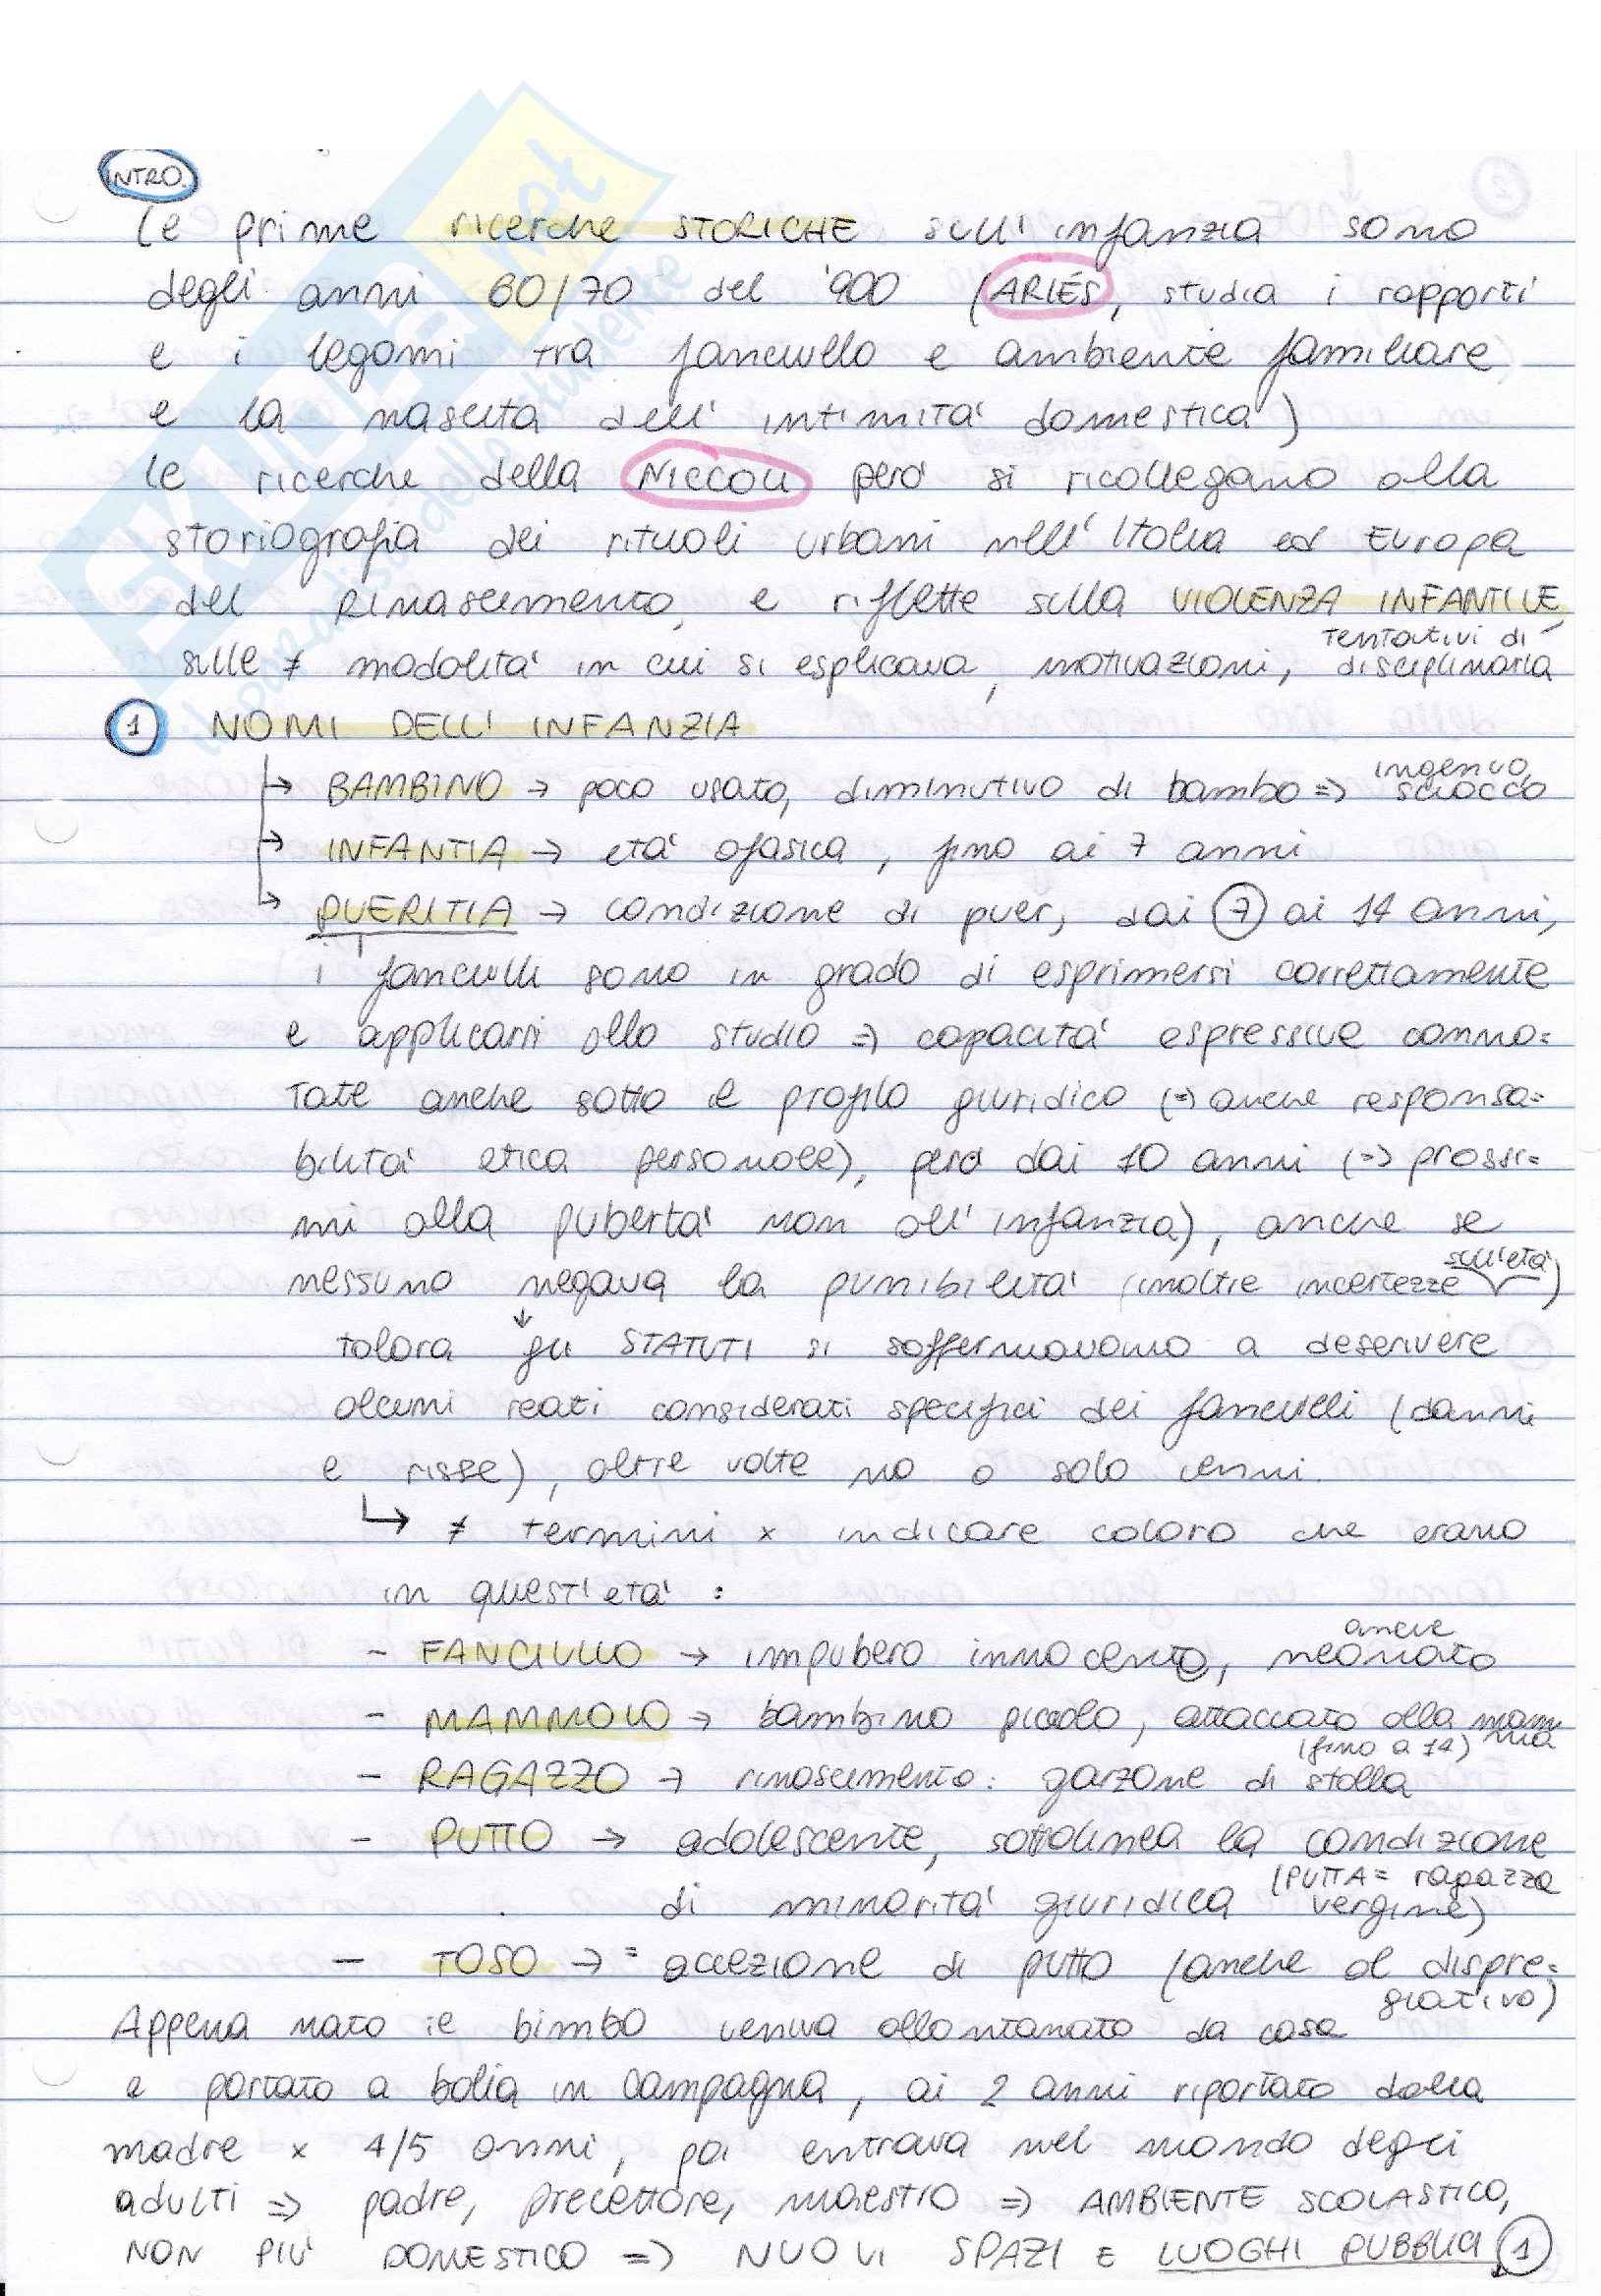 INTRO.
Le prime ricerche STORICHE sull'infanzia sono
degli anni 60/70 del '900 (ARIÉS, studia i rapporti
e i legami tra fanciullo e ambiente familiare
e la nascita dell'intimità domestica)
Le ricerche della NICCOLI però si ricollegano alla
storiografia dei rituali urbani nell'Italia ed Europa
del Rinascimento, e riflette sulla VIOLENZA INFANTILE,
sulle ≠ modalità in cui si esplicava, motivazioni, tentativi di disciplinarla
1 NOMI DELL'INFANZIA
→ BAMBINO → poco usato, diminutivo di bambo => ingenuo, sciocco
→ INFANTIA → età afasica, fino ai 7 anni
→ PUERITIA → condizione di puer, dai 7 ai 14 anni,
i fanciulli sono in grado di esprimersi correttamente
e applicarsi allo studio => capacità espressive conno=
tate anche sotto il profilo giuridico (=> anche responsa=
bilità etica personale), però dai 10 anni (=> prossi=
mi alla pubertà non all'infanzia), anche se
nessuno negava la punibilità (inoltre incertezze sull'età)
↓
talora gli STATUTI si soffermavano a descrivere
alcuni reati considerati specifici dei fanciulli (danni
e risse), altre volte no o solo cenni.
↳ ≠ termini x indicare coloro che erano
in quest'età :
- FANCIULLO → impubero innocente, anche neonato
- MAMMOLO → bambino piccolo, attaccato alla mamma
- RAGAZZO → rinascimento: garzone di stalla (fino a 14)
- PUTTO → adolescente, sottolinea la condizione
di minorità giuridica (PUTTA = ragazza vergine)
- TOSO → = accezione di putto (anche al dispre=
giativo)
Appena nato il bimbo veniva allontanato da casa
e portato a balia in campagna, ai 2 anni riportato dalla
madre x 4/5 anni, poi entrava nel mondo degli
adulti => padre, precettore, maestro => AMBIENTE SCOLASTICO,
NON PIÙ DOMESTICO => NUOVI SPAZI E LUOGHI PUBBLICI 1